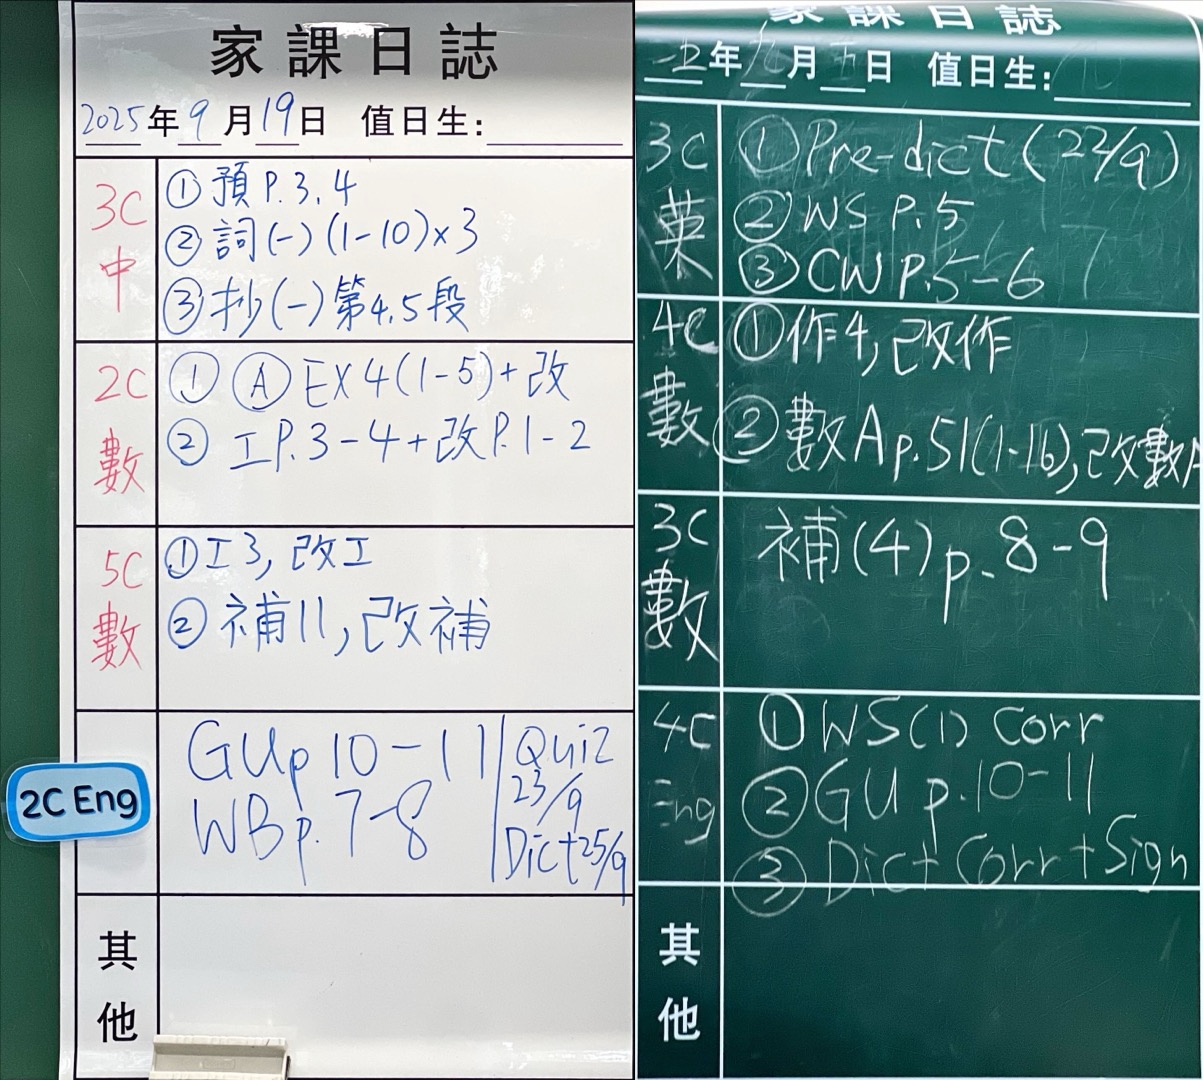 家課日誌
2025年9月19日 值日生:
3C
中
① 預 P.3,4
② 詞(一)(1-10)×3
③ 抄(一)第4,5段
2C
數
① Ⓐ EX 4(1-5)+改
② 工P.3-4+改P.1-2
5C
數
① 工3, 改工
② 補11, 改補
2C Eng
GU p 10-11
WB p. 7-8
Quiz
23/9
Dict 25/9
其
他
家課日誌
年 月 日 值日生:
3C
英
① Pre-dict (22/9)
② WS P.5
③ CW P.5-6
4C
數
① 作4, 改作
② 數A p.51(1-16), 改數A
3C
數
補(4) p. 8-9
4C
Eng
① WS(1) Corr
② GU p.10-11
③ Dict Corr + Sign
其
他